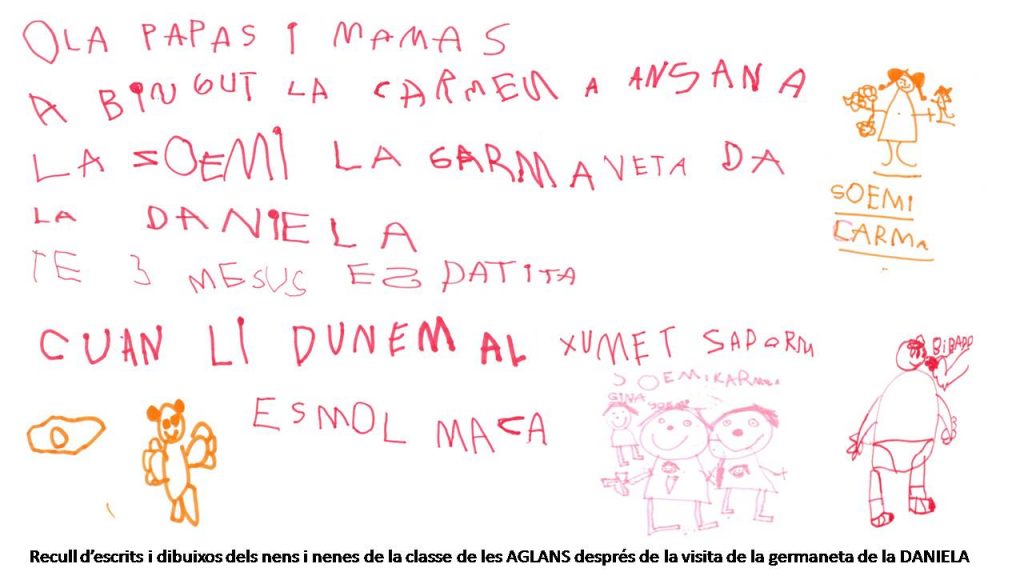 OLA PAPAS I MAMAS
A BINGUT LA CARMEN A ANSANA
LA SOEMI LA GARMAVETA DA
LA DANIELA
TE 3 MESUS ES PATITA
CUAN LI DUNEM AL XUMET SADORM
ESMOL MACA
SOEMI
CARMA
SOEMI KARMA
GINA
BIBARO
Recull d'escrits i dibuixos dels nens i nenes de la classe de les AGLANS després de la visita de la germaneta de la DANIELA